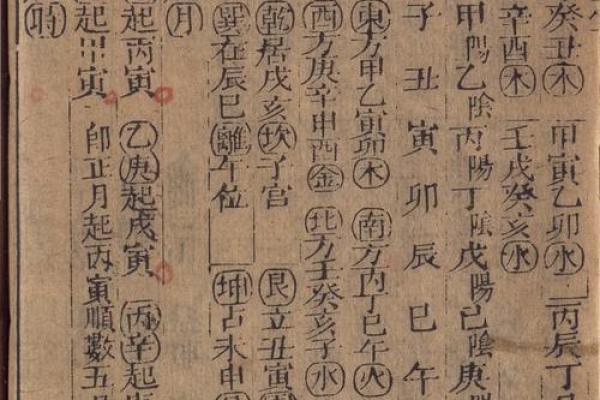 癸丑木 甲寅乙卯水 丙辰丁
辛酉木 壬戌癸亥水
甲陽乙陰丙陽丁陰戊陽己陰庚陽
子丑寅卯辰巳午
東方甲乙寅卯木 南方丙丁巳午火
西方庚辛申酉金 北方壬癸亥子水
乾居戌亥坎子宮 艮立丑寅
巽在辰巳離午位 坤占未申
月
起丙寅 乙庚起戊寅 丙辛起庚
起甲寅 即正月起丙寅順數五月
時